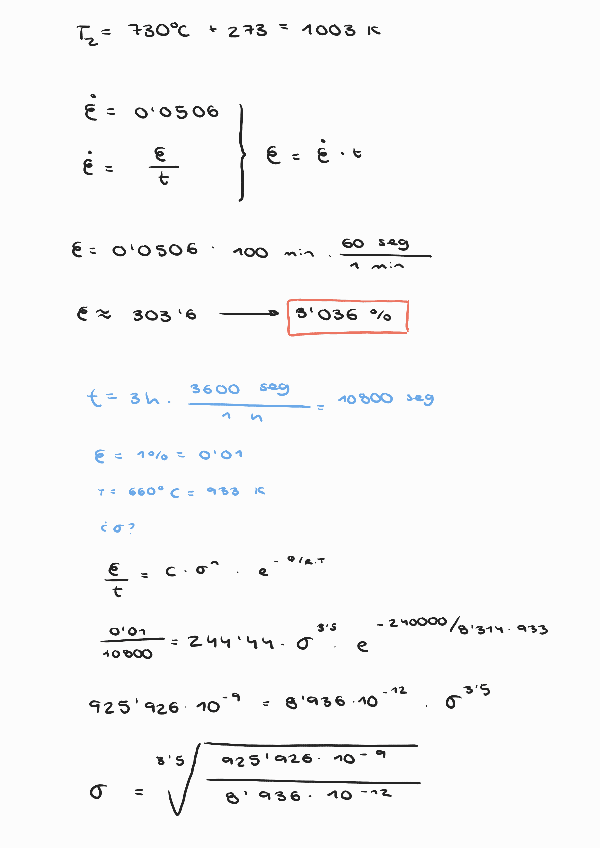 T₂ = 730°C + 273 = 1003 K
ε̇ = 0'0506
ε̇ = ε/t } ε = ε̇ · t
ε = 0'0506 · 100 min · 60 seg / 1 min
ε ≈ 303'6 → 3'036 %
t = 3h · 3600 seg / 1 h = 10800 seg
ε = 1% = 0'01
T = 660°C = 933 K
¿σ?
ε/t = C · σⁿ · e^(-Q/R·T)
0'01/10800 = 244'44 · σ^3'5 · e^(-240000/8'314·933)
925'926·10⁻⁹ = 8'936·10⁻¹² · σ^3'5
σ = 3'5√(925'926·10⁻⁹ / 8'936·10⁻¹²)